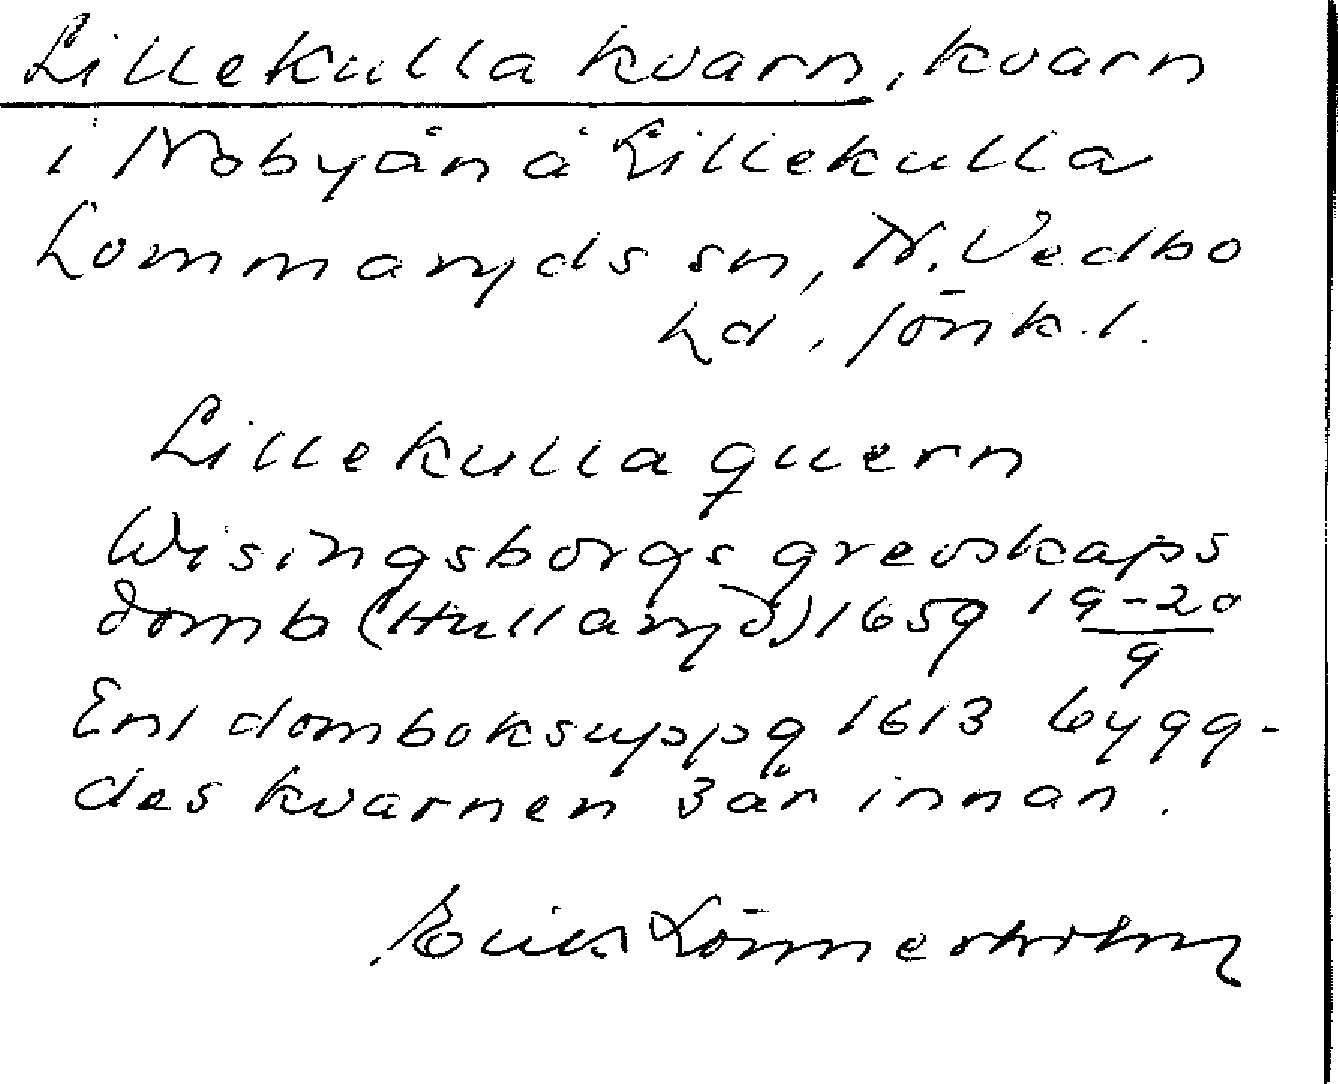 Lillekulla kvarn, kvarn
i Nobyån å Lillekulla
Lommaryds sn, N. Vedbo
hd, Jönk.l.
Lillekulla quern
Wisingsborgs grevskaps
domb (Hullaryd) 1659 19-20/9
Enl domboksuppg 1613 bygg-
des kvarnen 3 år innan.
Erik Lönnerholm